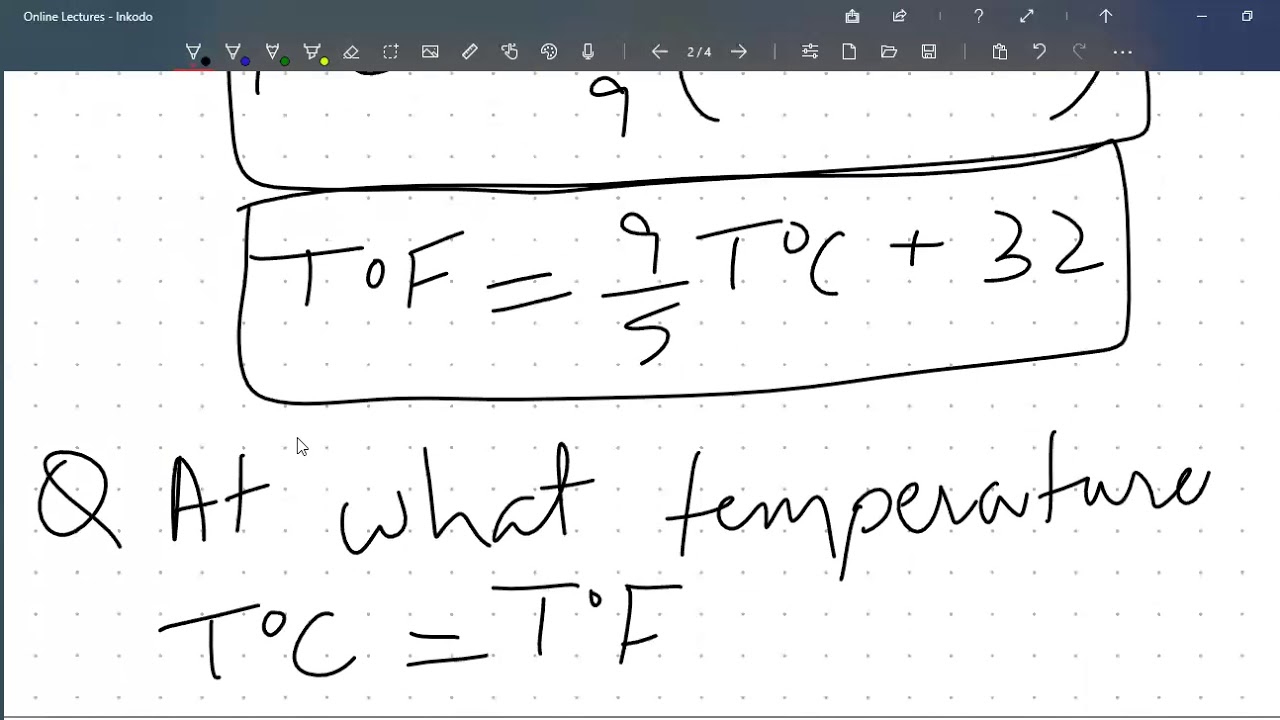 Online Lectures - Inkodo
2/4
9 ( )
T°F = 9/5 T°C + 32
Q At what temperature
T°C = T°F